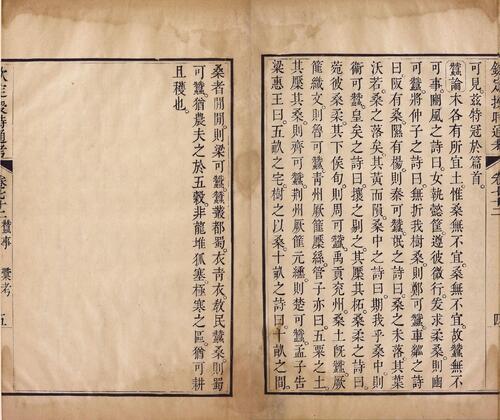 欽定授時通考
卷七十二
四
可見茲特冠於篇首
蠶論木各有所宜土惟桑無不宜桑無不宜故蠶無不
可事豳風之詩曰女執懿筐遵彼微行爰求柔桑則豳
可蠶將仲子之詩曰無折我樹桑則鄭可蠶車鄰之詩
曰阪有桑隰有楊則秦可蠶氓之詩曰桑之未落其葉
沃若桑之落矣其黃而隕桑中之詩曰期我乎桑中則
衞可蠶皇矣之詩曰攘之剔之其檿其柘桑柔之詩曰
菀彼桑柔其下侯旬則周可蠶禹貢兗州桑土旣蠶厥
篚織文則魯可蠶靑州厥篚檿絲管子亦曰五粟之土
其檿其桑則齊可蠶荆州厥篚元纁則楚可蠶孟子告
梁惠王曰五畝之宅樹之以桑十畝之詩曰十畝之間
桑者閒閒則梁可蠶蠶叢都蜀衣靑衣敎民蠶桑則蜀
可蠶猶農夫之於五穀非龍堆狐塞極寒之區猶可耕
且穫也
欽定授時通考
卷七十二
蠶事
蠶考
五